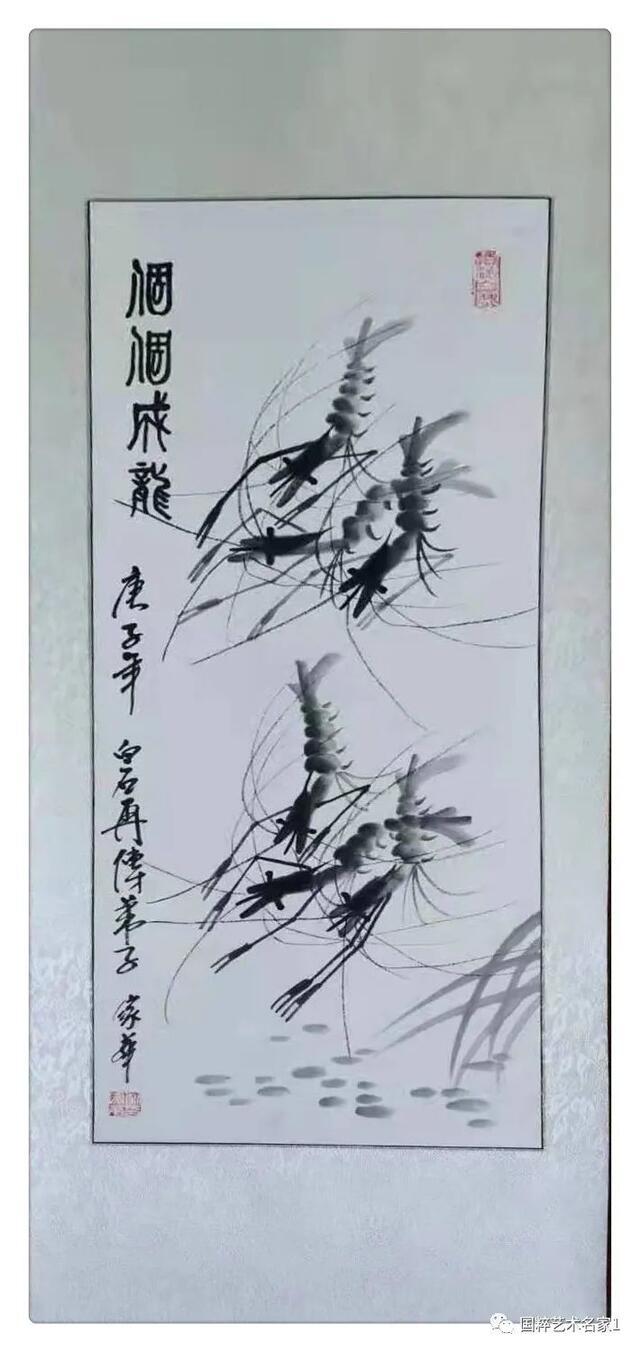 個個成龍
庚子年 白石再傳弟子 家華
国粹艺术名家1